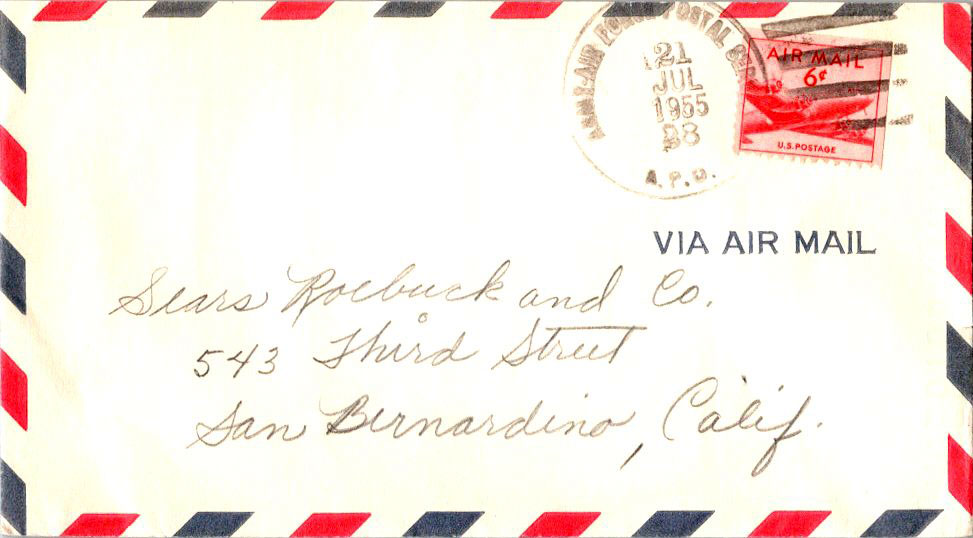 ARMY-AIR FORCE POSTAL SER
21
JUL
1955
A.P.O.
AIR MAIL
6¢
U.S. POSTAGE
VIA AIR MAIL
Sears Roebuck and Co.
543 Third Street
San Bernardino, Calif.